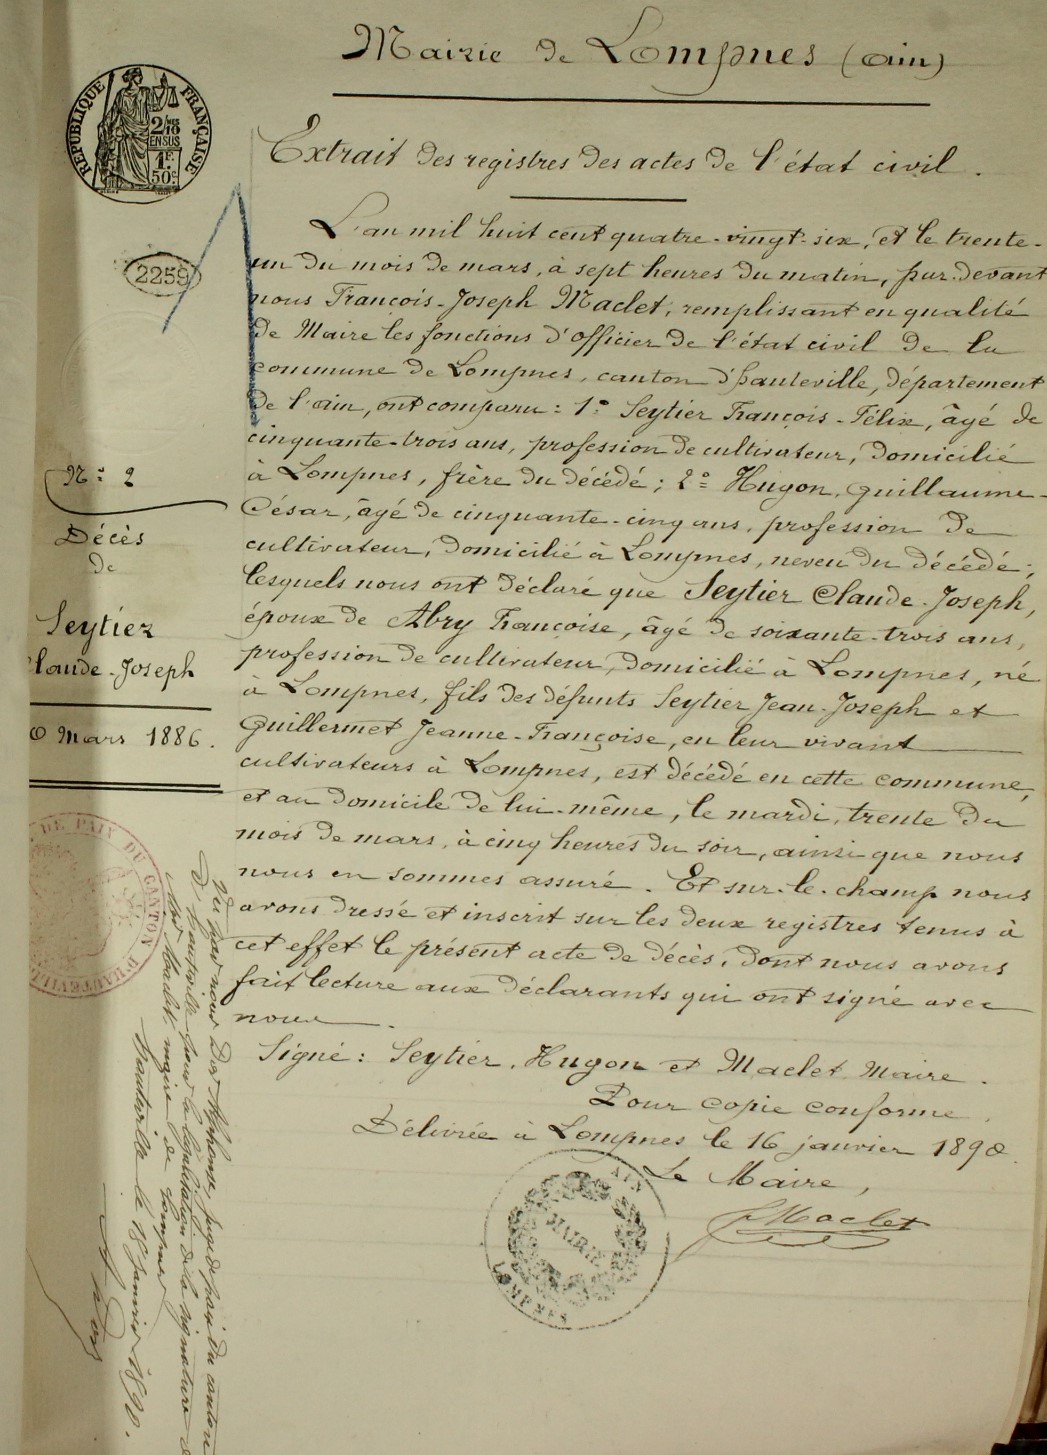 Mairie de Lompnes (Ain)
RÉPUBLIQUE FRANÇAISE
2/10 EN SUS
1F. 50c.
Extrait des registres des actes de l'état civil.
2259
L'an mil huit cent quatre-vingt-six, et le trente-
un du mois de mars, à sept heures du matin, par-devant
nous François-Joseph Maclet, remplissant en qualité
de Maire les fonctions d'officier de l'état civil de la
commune de Lompnes, canton d'hauteville, département
de l'ain, ont comparu : 1° Seytier François-Félix, âgé de
cinquante-trois ans, profession de cultivateur, domicilié
à Lompnes, frère du décédé ; 2° Hugon, Guillaume-
César, âgé de cinquante-cinq ans, profession de
cultivateur, domicilié à Lompnes, neveu du décédé ;
lesquels nous ont déclaré que Seytier Claude-Joseph,
époux de Abry Françoise, âgé de soixante-trois ans,
profession de cultivateur, domicilié à Lompnes, né
à Lompnes, fils des défunts Seytier Jean-Joseph et
Guillermet Jeanne-Françoise, en leur vivant
cultivateurs à Lompnes, est décédé en cette commune,
et au domicile de lui-même, le mardi, trente du
mois de mars, à cinq heures du soir, ainsi que nous
nous en sommes assuré. Et sur-le-champ nous
avons dressé et inscrit sur les deux registres tenus à
cet effet le présent acte de décès, dont nous avons
fait lecture aux déclarants qui ont signé avec
nous.
Signé : Seytier, Hugon et Maclet Maire.
Pour copie conforme.
Délivrée à Lompnes le 16 janvier 1890.
Le Maire,
Maclet
MAIRIE
LOMPNES
AIN
N° 2
Décès
de
Seytier
Claude-Joseph
0 Mars 1886.
DE PAIX DU CANTON D'HAUTEVILLE
Vu par nous Alphonse, juge de paix du canton
d'hauteville pour la légalisation de la signature
Maclet, maire de Lompnes
hauteville le 18 Janvier 1890.